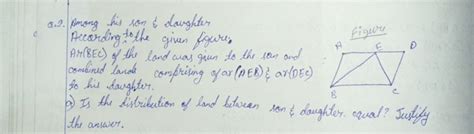 Q.2. Among his son & daughter
According to the given figure,
Ar(BEC) of the land was given to the son and
combined lands comprising of ar(AEB) & ar(DEC)
to his daughter.
a) Is the distribution of land between son & daughter equal? Justify
the answer.
Figure
A E D
B C